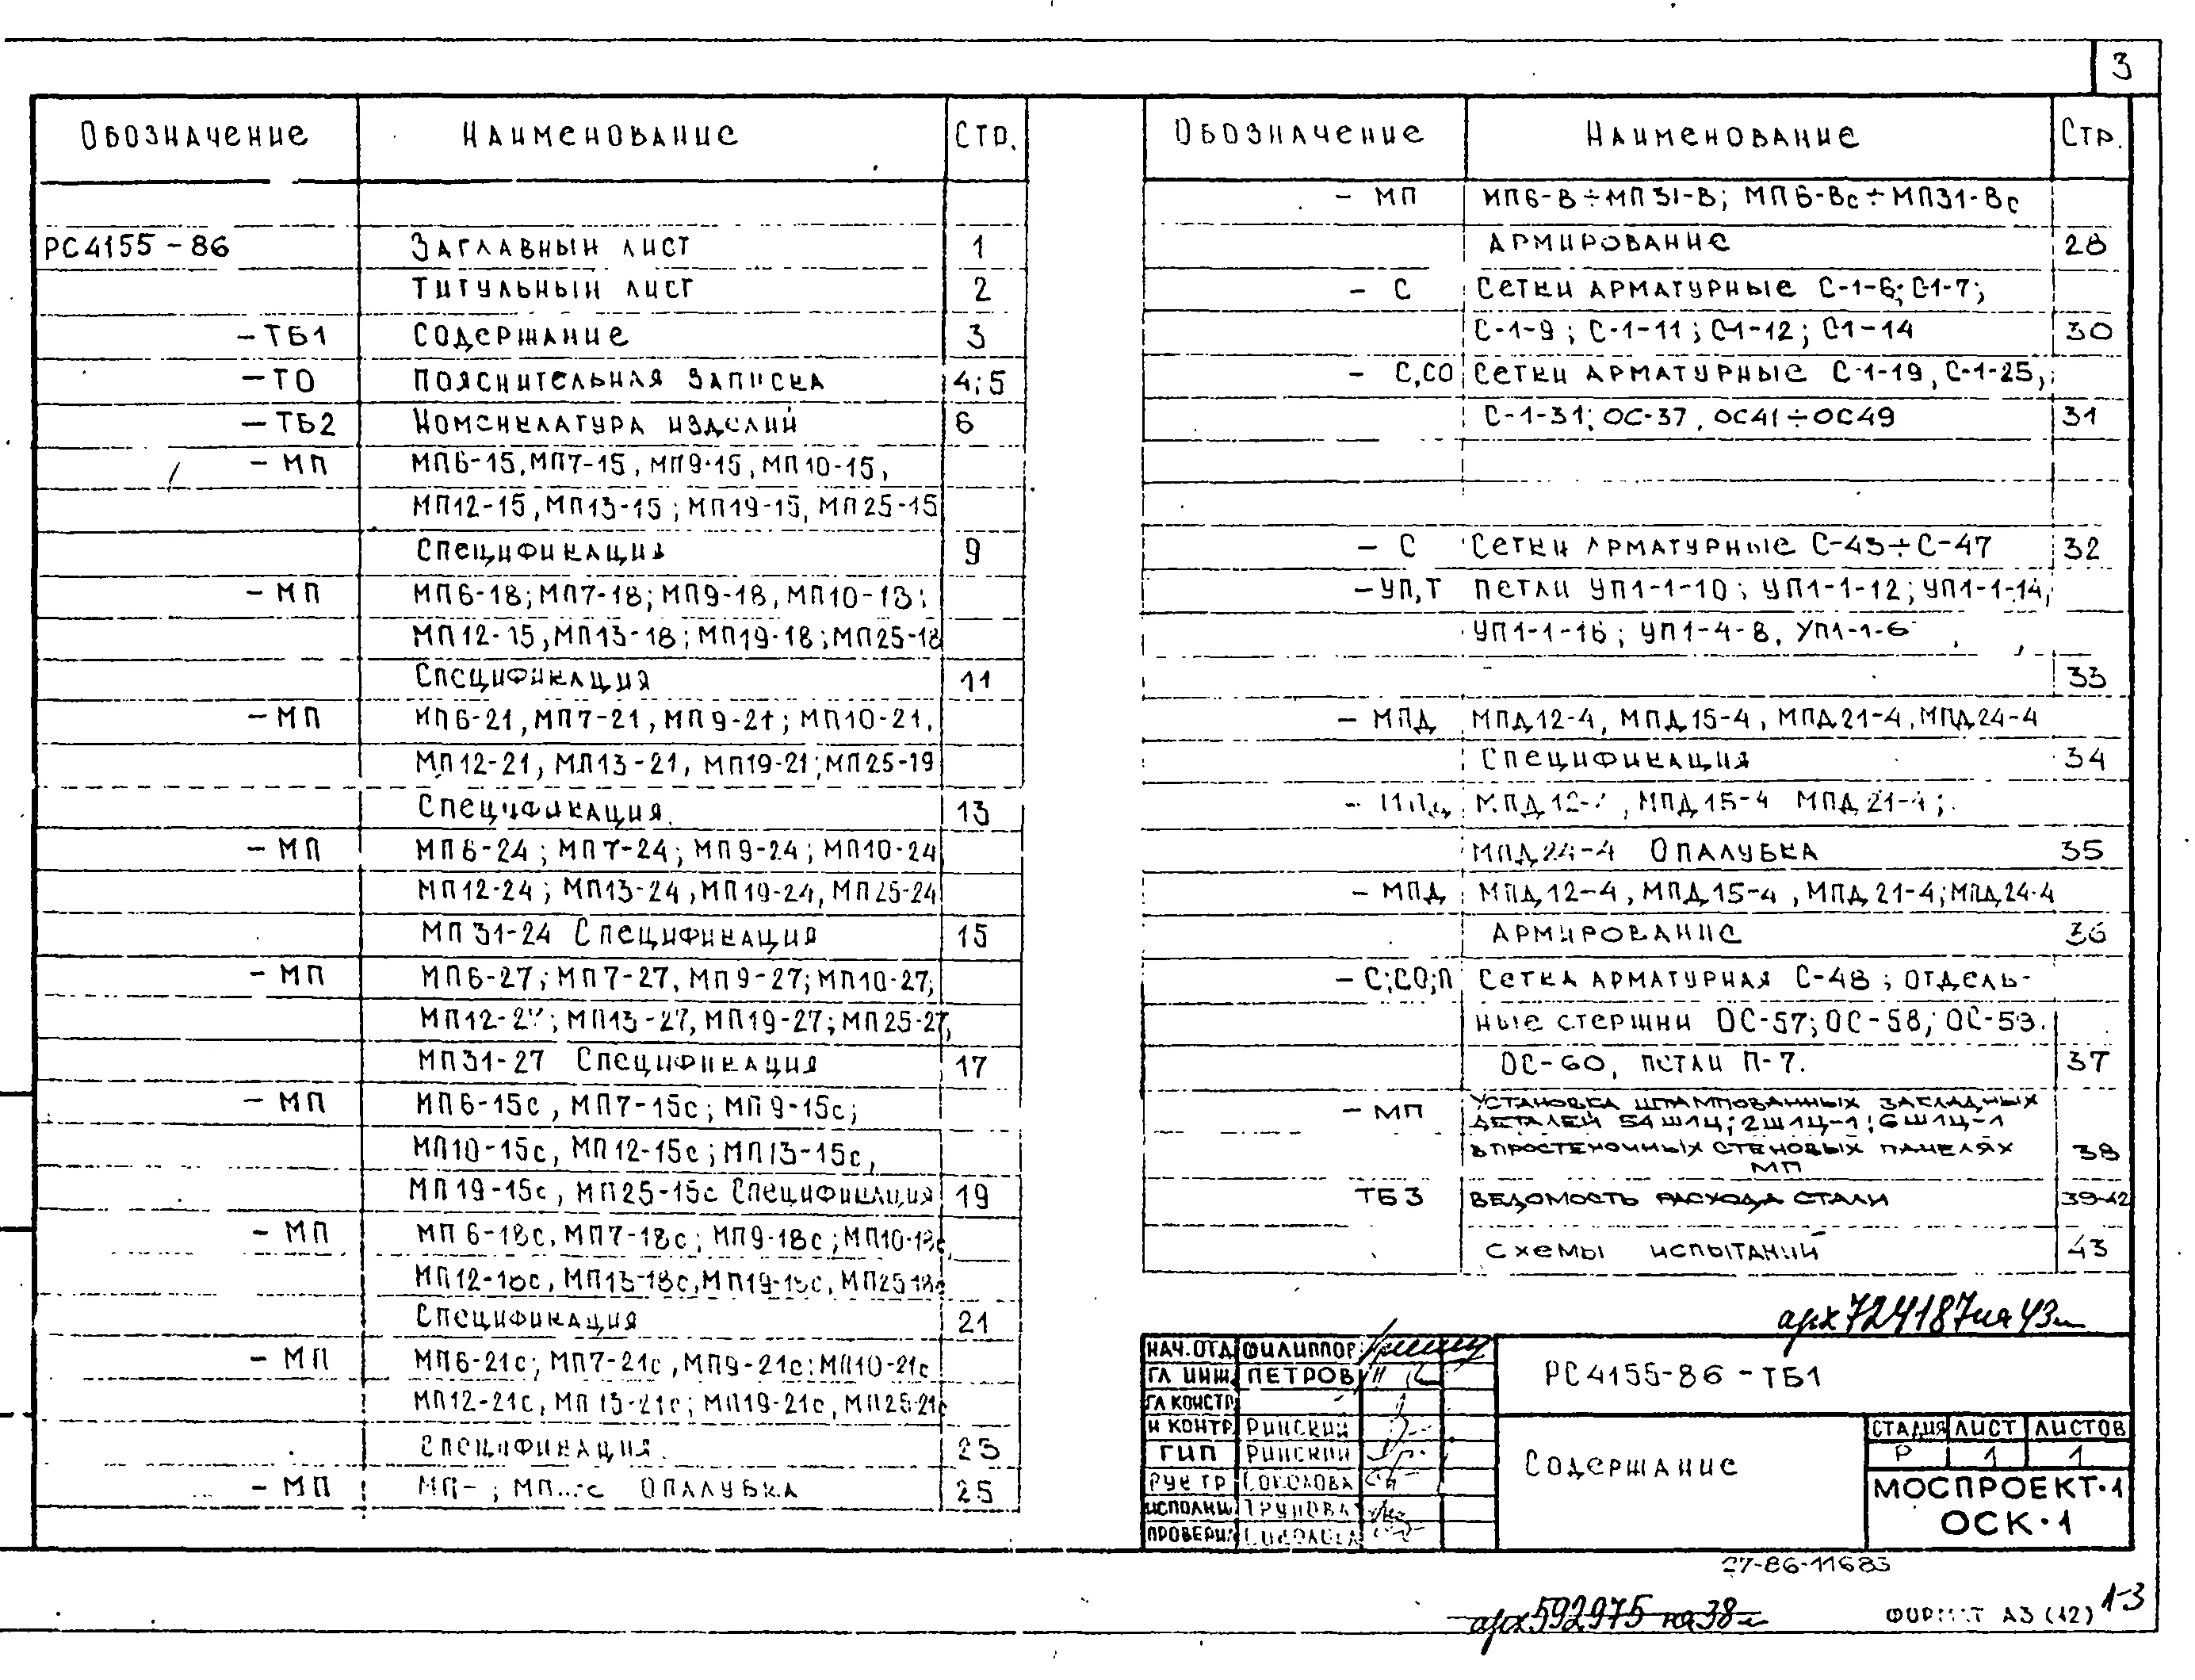 3
Обозначение Наименование Стр.
РС4155-86 Заглавный лист 1
Титульный лист 2
-ТБ1 Содержание 3
-ТО Пояснительная записка 4;5
-ТБ2 Номенклатура изделий 6
-МП МП6-15, МП7-15, МП9-15, МП10-15,
МП12-15, МП13-15; МП19-15, МП25-15
Спецификация 9
-МП МП6-18; МП7-18; МП9-18, МП10-18;
МП12-15, МП13-18; МП19-18; МП25-18
Спецификация 11
-МП МП6-21, МП7-21, МП9-21; МП10-21,
МП12-21, МП13-21, МП19-21; МП25-19
Спецификация. 13
-МП МП6-24; МП7-24; МП9-24; МП10-24
МП12-24; МП13-24, МП19-24, МП25-24
МП31-24 Спецификация 15
-МП МП6-27; МП7-27, МП9-27; МП10-27;
МП12-27; МП13-27, МП19-27; МП25-27,
МП31-27 Спецификация 17
-МП МП6-15с, МП7-15с; МП9-15с;
МП10-15с, МП12-15с; МП13-15с,
МП19-15с, МП25-15с Спецификация 19
-МП МП6-18с, МП7-18с; МП9-18с; МП10-18с,
МП12-18с, МП13-18с, МП19-18с, МП25-18с
Спецификация 21
-МП МП6-21с; МП7-21с, МП9-21с; МП10-21с
МП12-21с, МП13-21с; МП19-21с, МП25-21с
Спецификация. 23
-МП МП- ; МП...с Опалубка 25
Обозначение Наименование Стр.
-МП МП6-В÷МП31-В; МП6-Вс÷МП31-Вс
Армирование 28
-С Сетки арматурные С-1-6; С-1-7;
С-1-9; С-1-11; С-1-12; С1-14 30
- С,СО Сетки арматурные С-1-19, С-1-25,
С-1-31; ОС-37, ОС41÷ОС49 31
-С Сетки арматурные С-43÷С-47 32
-УП,Т Петли УП1-1-10; УП1-1-12; УП1-1-14,
УП1-1-16; УП1-4-8, УП1-1-6
33
-МПД МПД12-4, МПД15-4, МПД21-4, МПД24-4
Спецификация 34
-МПД МПД12-4, МПД15-4 МПД21-4;
МПД24-4 Опалубка 35
-МПД МПД12-4, МПД15-4, МПД21-4; МПД24-4
Армирование 36
-С;СО;П Сетка арматурная С-48; отдель-
ные стержни ОС-57; ОС-58; ОС-59.
ОС-60, петли П-7. 37
-МП Установка штампованных закладных
деталей 54Ш1Ц; 2Ш1Ц-1; 6Ш1Ц-1
в простеночных стеновых панелях
МП 38
ТБ3 Ведомость расхода стали 39-42
Схемы испытаний 43
арх 724187 на 43л
НАЧ.ОТД ФИЛИППОВ
ГЛ ИНЖ. ПЕТРОВ
ГЛ КОНСТР
Н КОНТР. РИНСКИЙ
ГИП РИНСКИЙ
РУК ГР СОКОЛОВА
ИСПОЛНИЛ ТРУНОВА
ПРОВЕРИЛ
РС4155-86-ТБ1
Содержание
СТАДИЯ ЛИСТ ЛИСТОВ
Р 1 1
МОСПРОЕКТ-1
ОСК-1
27-86-11683
арх 592975 на 38л
ФОРМАТ А3 (12)
1-3